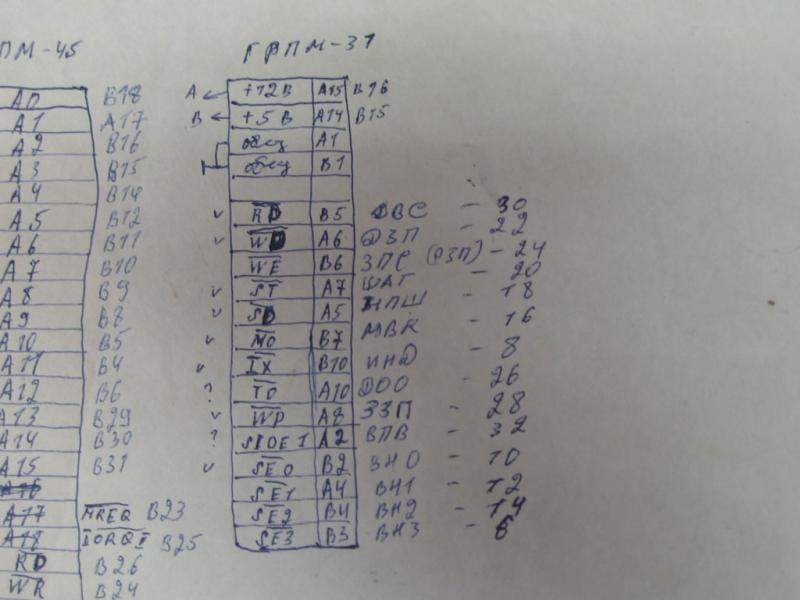 ПМ-45
A0 B18
A1 A17
A2 B16
A3 B15
A4 B14
A5 B12
A6 B11
A7 B10
A8 B9
A9 B8
A10 B5
A11 B4
A12 B6
A13 B29
A14 B30
A15 B31
A16
A17 MREQ B23
A18 IORQI B25
RD B26
WR B24
ГРПМ-31
A +12В A15 B16
B +5В A14 B15
общ A1
общ B1
v RD B5 ДВС - 30
v WD A6 ДЗП - 22
WE B6 ЗПС (РЗП) - 24
v ST A7 ШАГ - 20
v SD A5 НПШ - 18
v MO B7 МВК - 16
v IX B10 ИНД - 8
? TO A10 ДОО - 26
v WP A8 ЗЗП - 28
? SIDE1 A2 ВПВ - 32
v SE0 B2 ВН0 - 10
SE1 A4 ВН1 - 12
SE2 B4 ВН2 - 14
SE3 B3 ВН3 - 6